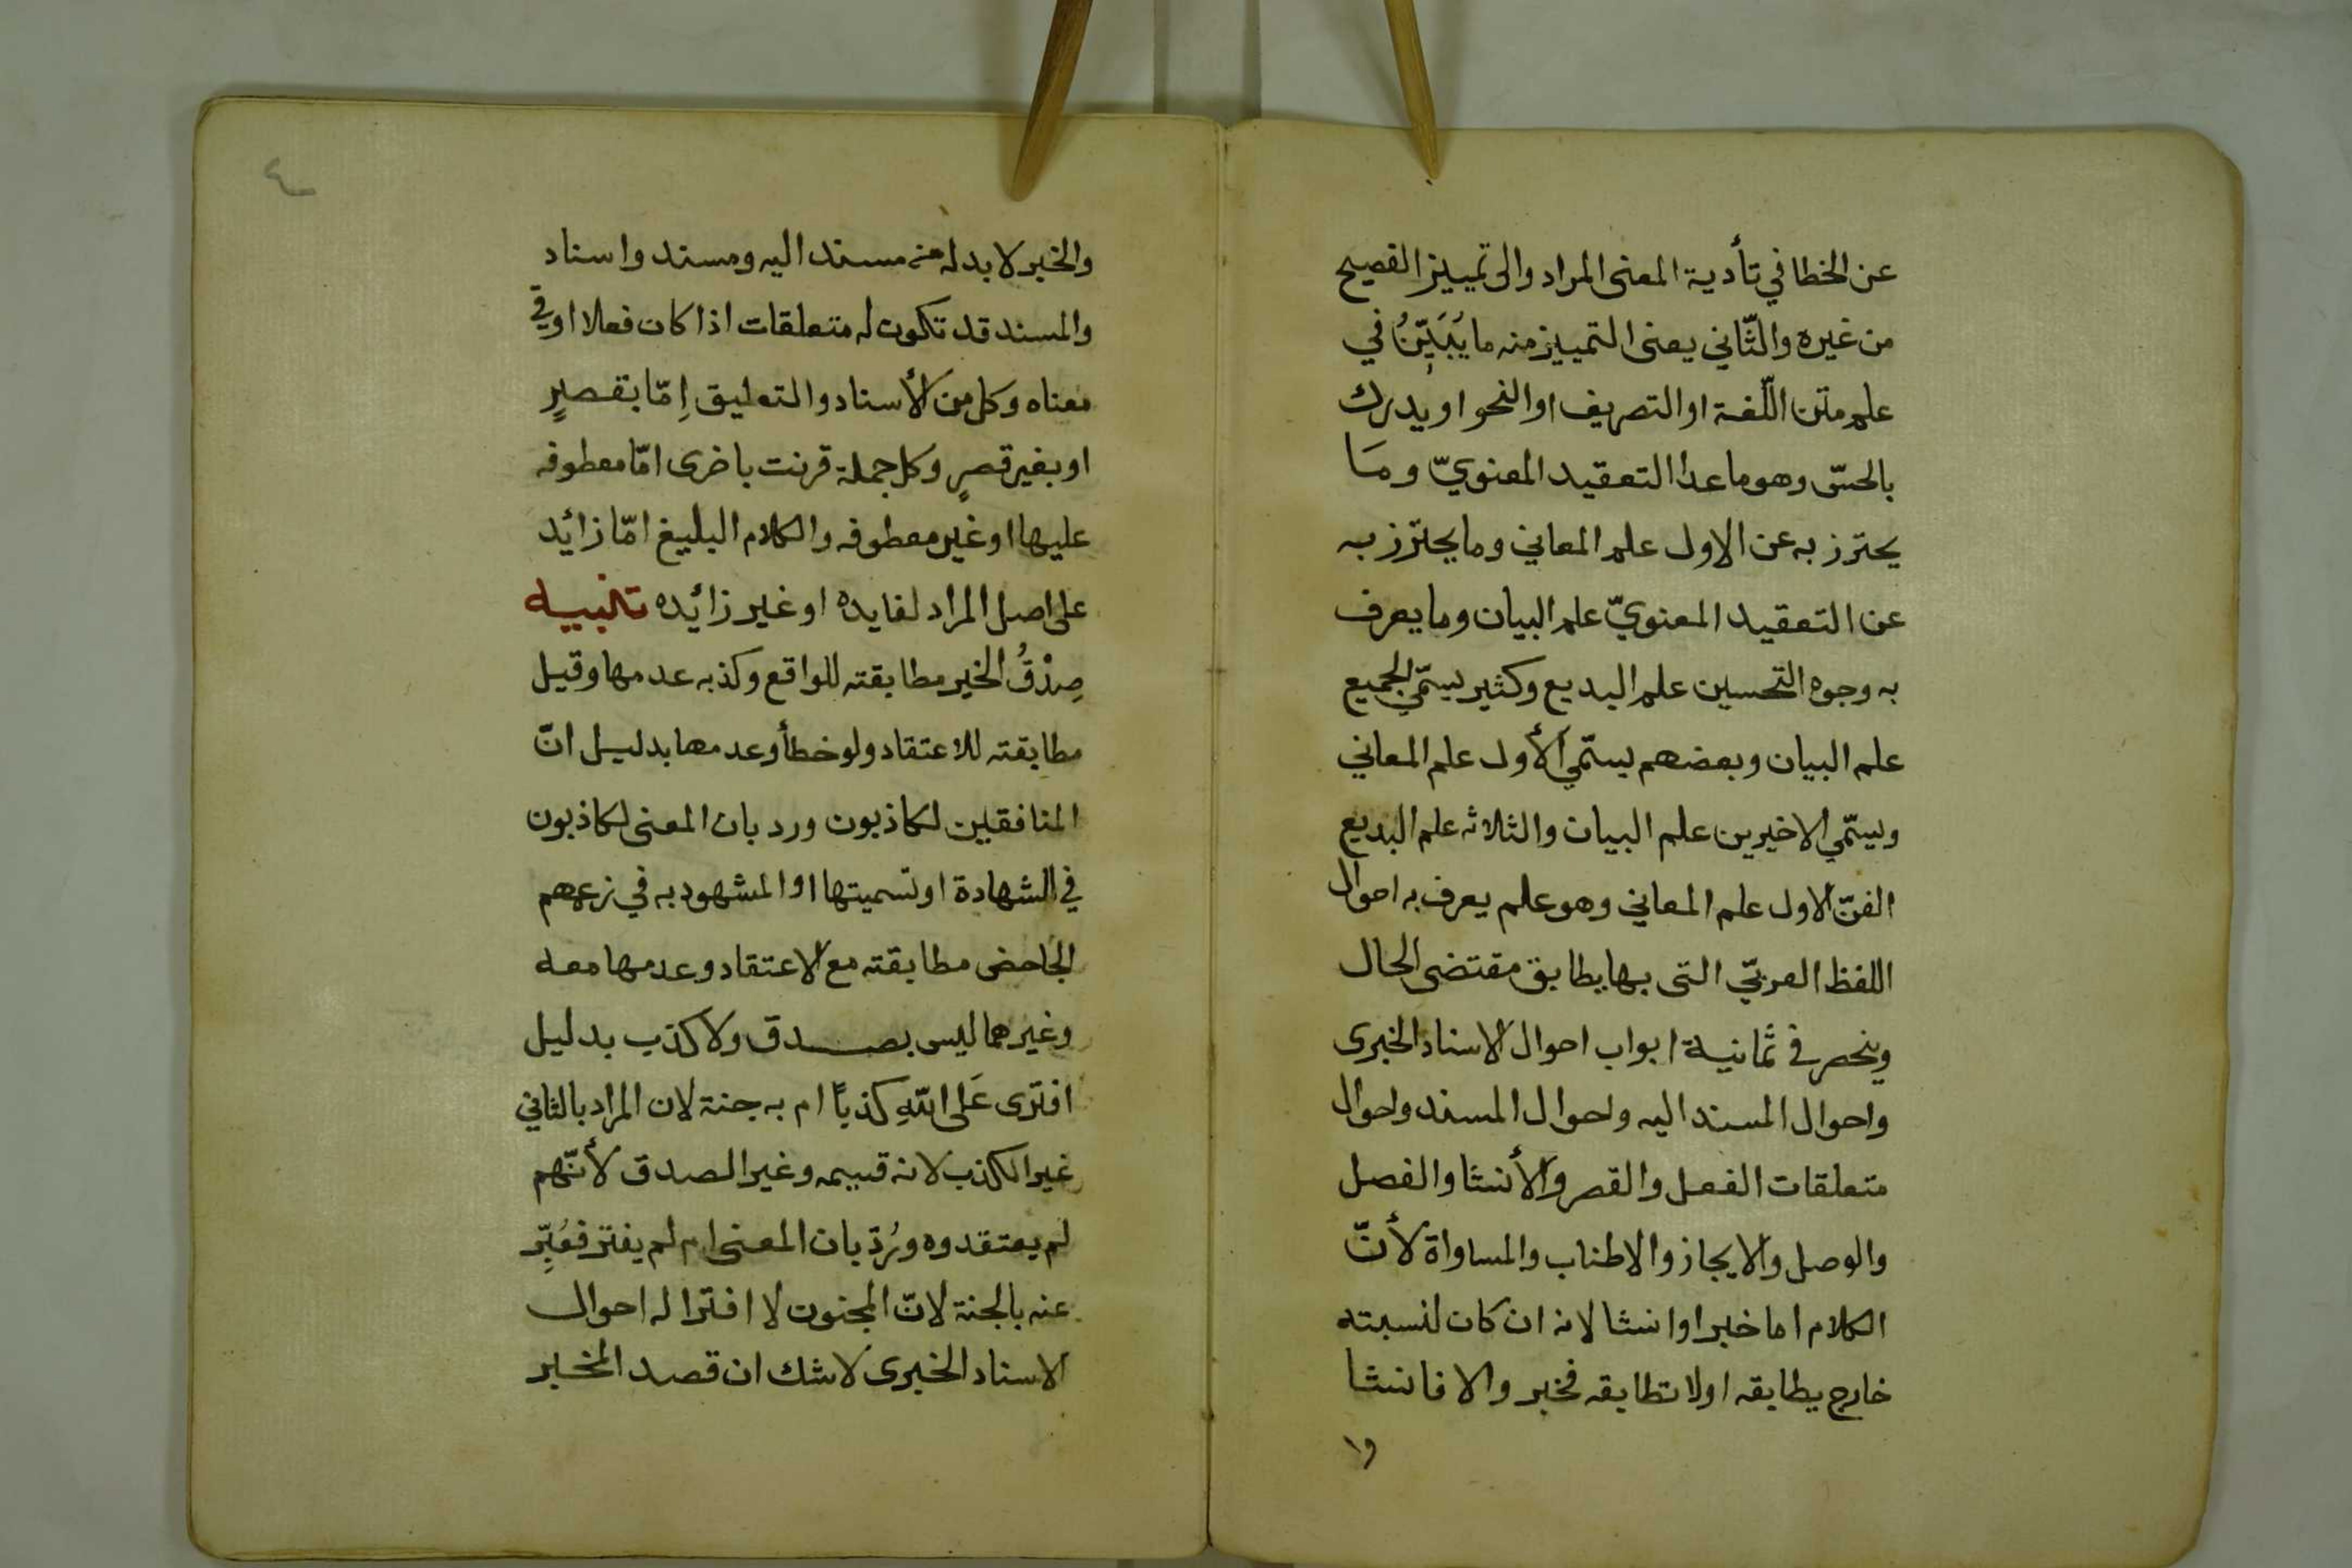 عن الخطا في تأدية المعنى المراد والى تمييز الفصيح
من غيره والثّاني يعنى التمييز منه ما يُبَيّنُ في
علم متن اللّغة او التصريف او النحو او يدرك
بالحسّ وهو ما عدا التعقيد المعنويّ ومَا
يحترز به عن الاول علم المعاني وما يحترز به
عن التعقيد المعنويّ علم البيان وما يعرف
به وجوه التحسين علم البديع وكثير يسمّي الجميع
علم البيان وبعضهم يسمّي الأول علم المعاني
ويسمّي الاخيرين علم البيان والثلاثه علم البديع
الفنّ الاول علم المعاني وهو علم يعرف به احوال
اللفظ العربيّ التى بها يطابق مقتضى الحال
وينحصر في ثمانية ابواب احوال الاسناد الخبرى
واحوال المسند اليه واحوال المسند واحوال
متعلقات الفعل والقصر والأنشا والفصل
والوصل والايجاز والاطناب والمساواة لأنّ
الكلام اما خبر او انشا لانه ان كان لنسبته
خارج يطابقه اولا تطابقه فخبر والا فانشا
وا
٤
والخبر لا بد له من مسند اليه ومسند واسناد
والمسند قد تكون له متعلقات اذا كان فعلا او في
معناه وكل من الأسناد والتعليق اِمّا بقصرٍ
او بغير قصرٍ وكل جملة قرنت باخرى امّا معطوفه
عليها او غير معطوفه والكلام البليغ امّا زائد
على اصل المراد لفايده او غير زائده تنبيه
صِدْقُ الخبر مطابقته للواقع وكذبه عدمها وقيل
مطابقته للاعتقاد ولو خطأ وعدمها بدليل انّ
المنافقين لكاذبون ورد بان المعنى لكاذبون
في الشهادة او تسميتها او المشهود به في زعمهم
الجاحض مطابقته مع الاعتقاد وعدمها معه
وغيرهما ليس بصدق ولا كذب بدليل
افترى عَلى اللّهِ كذباً ام به جنة لان المراد بالثاني
غير الكذب لانه قسيمه وغير الصدق لأنّهم
لم يعتقدوه ورُدّ بان المعنى ام لم يفتر فعُبِّر
عنه بالجنة لانّ المجنون لا افترا له احوال
الاسناد الخبرى لا شك ان قصد المخبر